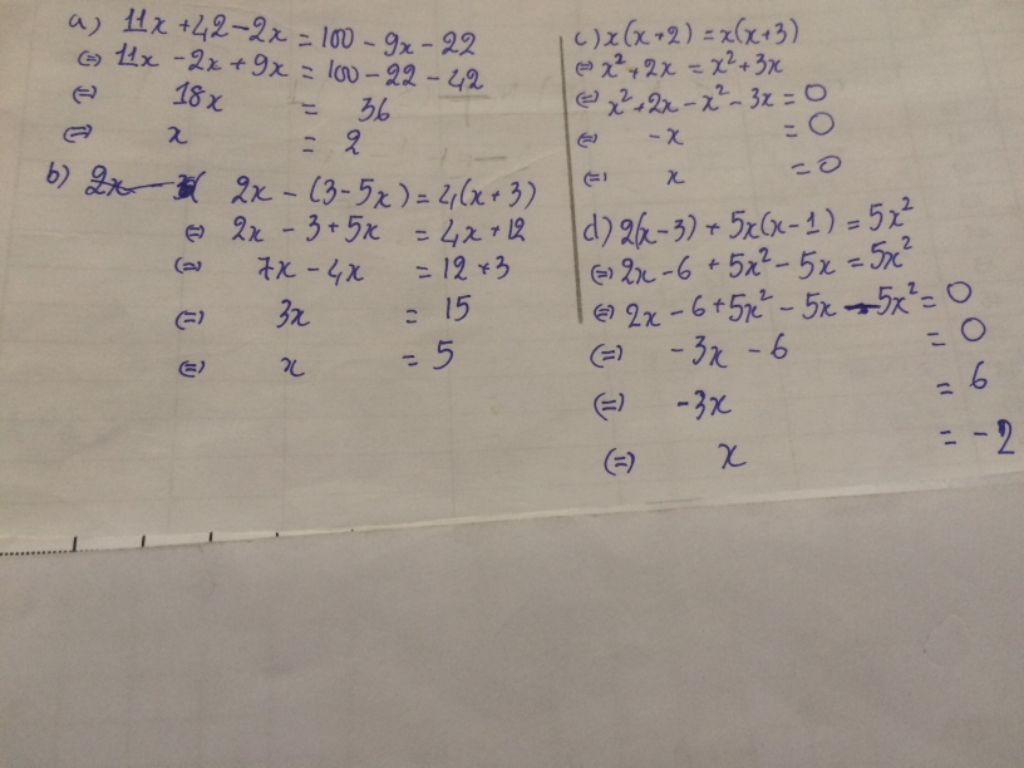 a) 11x + 42 - 2x = 100 - 9x - 22
⇔ 11x - 2x + 9x = 100 - 22 - 42
⇔ 18x = 36
⇔ x = 2
b) 2x - (3 - 5x) = 4(x + 3)
⇔ 2x - 3 + 5x = 4x + 12
⇔ 7x - 4x = 12 + 3
⇔ 3x = 15
⇔ x = 5
c) x(x + 2) = x(x + 3)
⇔ x² + 2x = x² + 3x
⇔ x² + 2x - x² - 3x = 0
⇔ -x = 0
⇔ x = 0
d) 2(x - 3) + 5x(x - 1) = 5x²
⇔ 2x - 6 + 5x² - 5x = 5x²
⇔ 2x - 6 + 5x² - 5x - 5x² = 0
⇔ -3x - 6 = 0
⇔ -3x = 6
⇔ x = -2